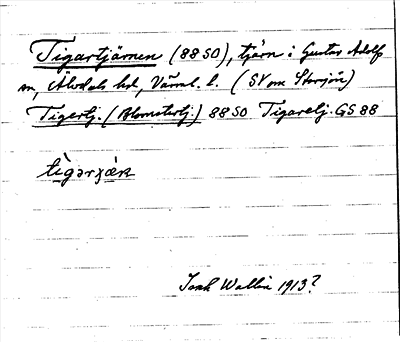 Tigartjärnen (88 SO), tjärn i Gustav Adolfs
sn, Älvdals hd, Värml. l. (SV om Storsjön)
Tigertj. (Blomstertj.) 88 SO Tigaretj. GS 88
Wallin 1913?